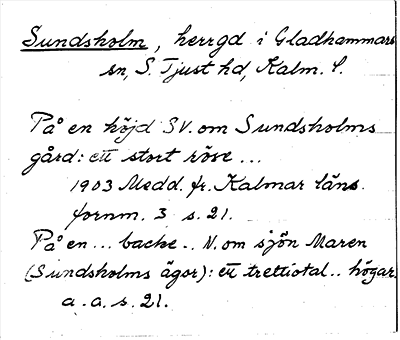 Sundsholm, herrgd i Gladhammars
sn, S. Tjust hd, Kalm. l.
På en höjd SV. om Sundsholms
gård: ett stort röse ...
1903 Medd. fr. Kalmar läns
fornm. 3 s. 21.
På en ... backe .. N. om sjön Maren
(Sundsholms ägor): ett trettiotal .. högar.
a. a. s. 21.